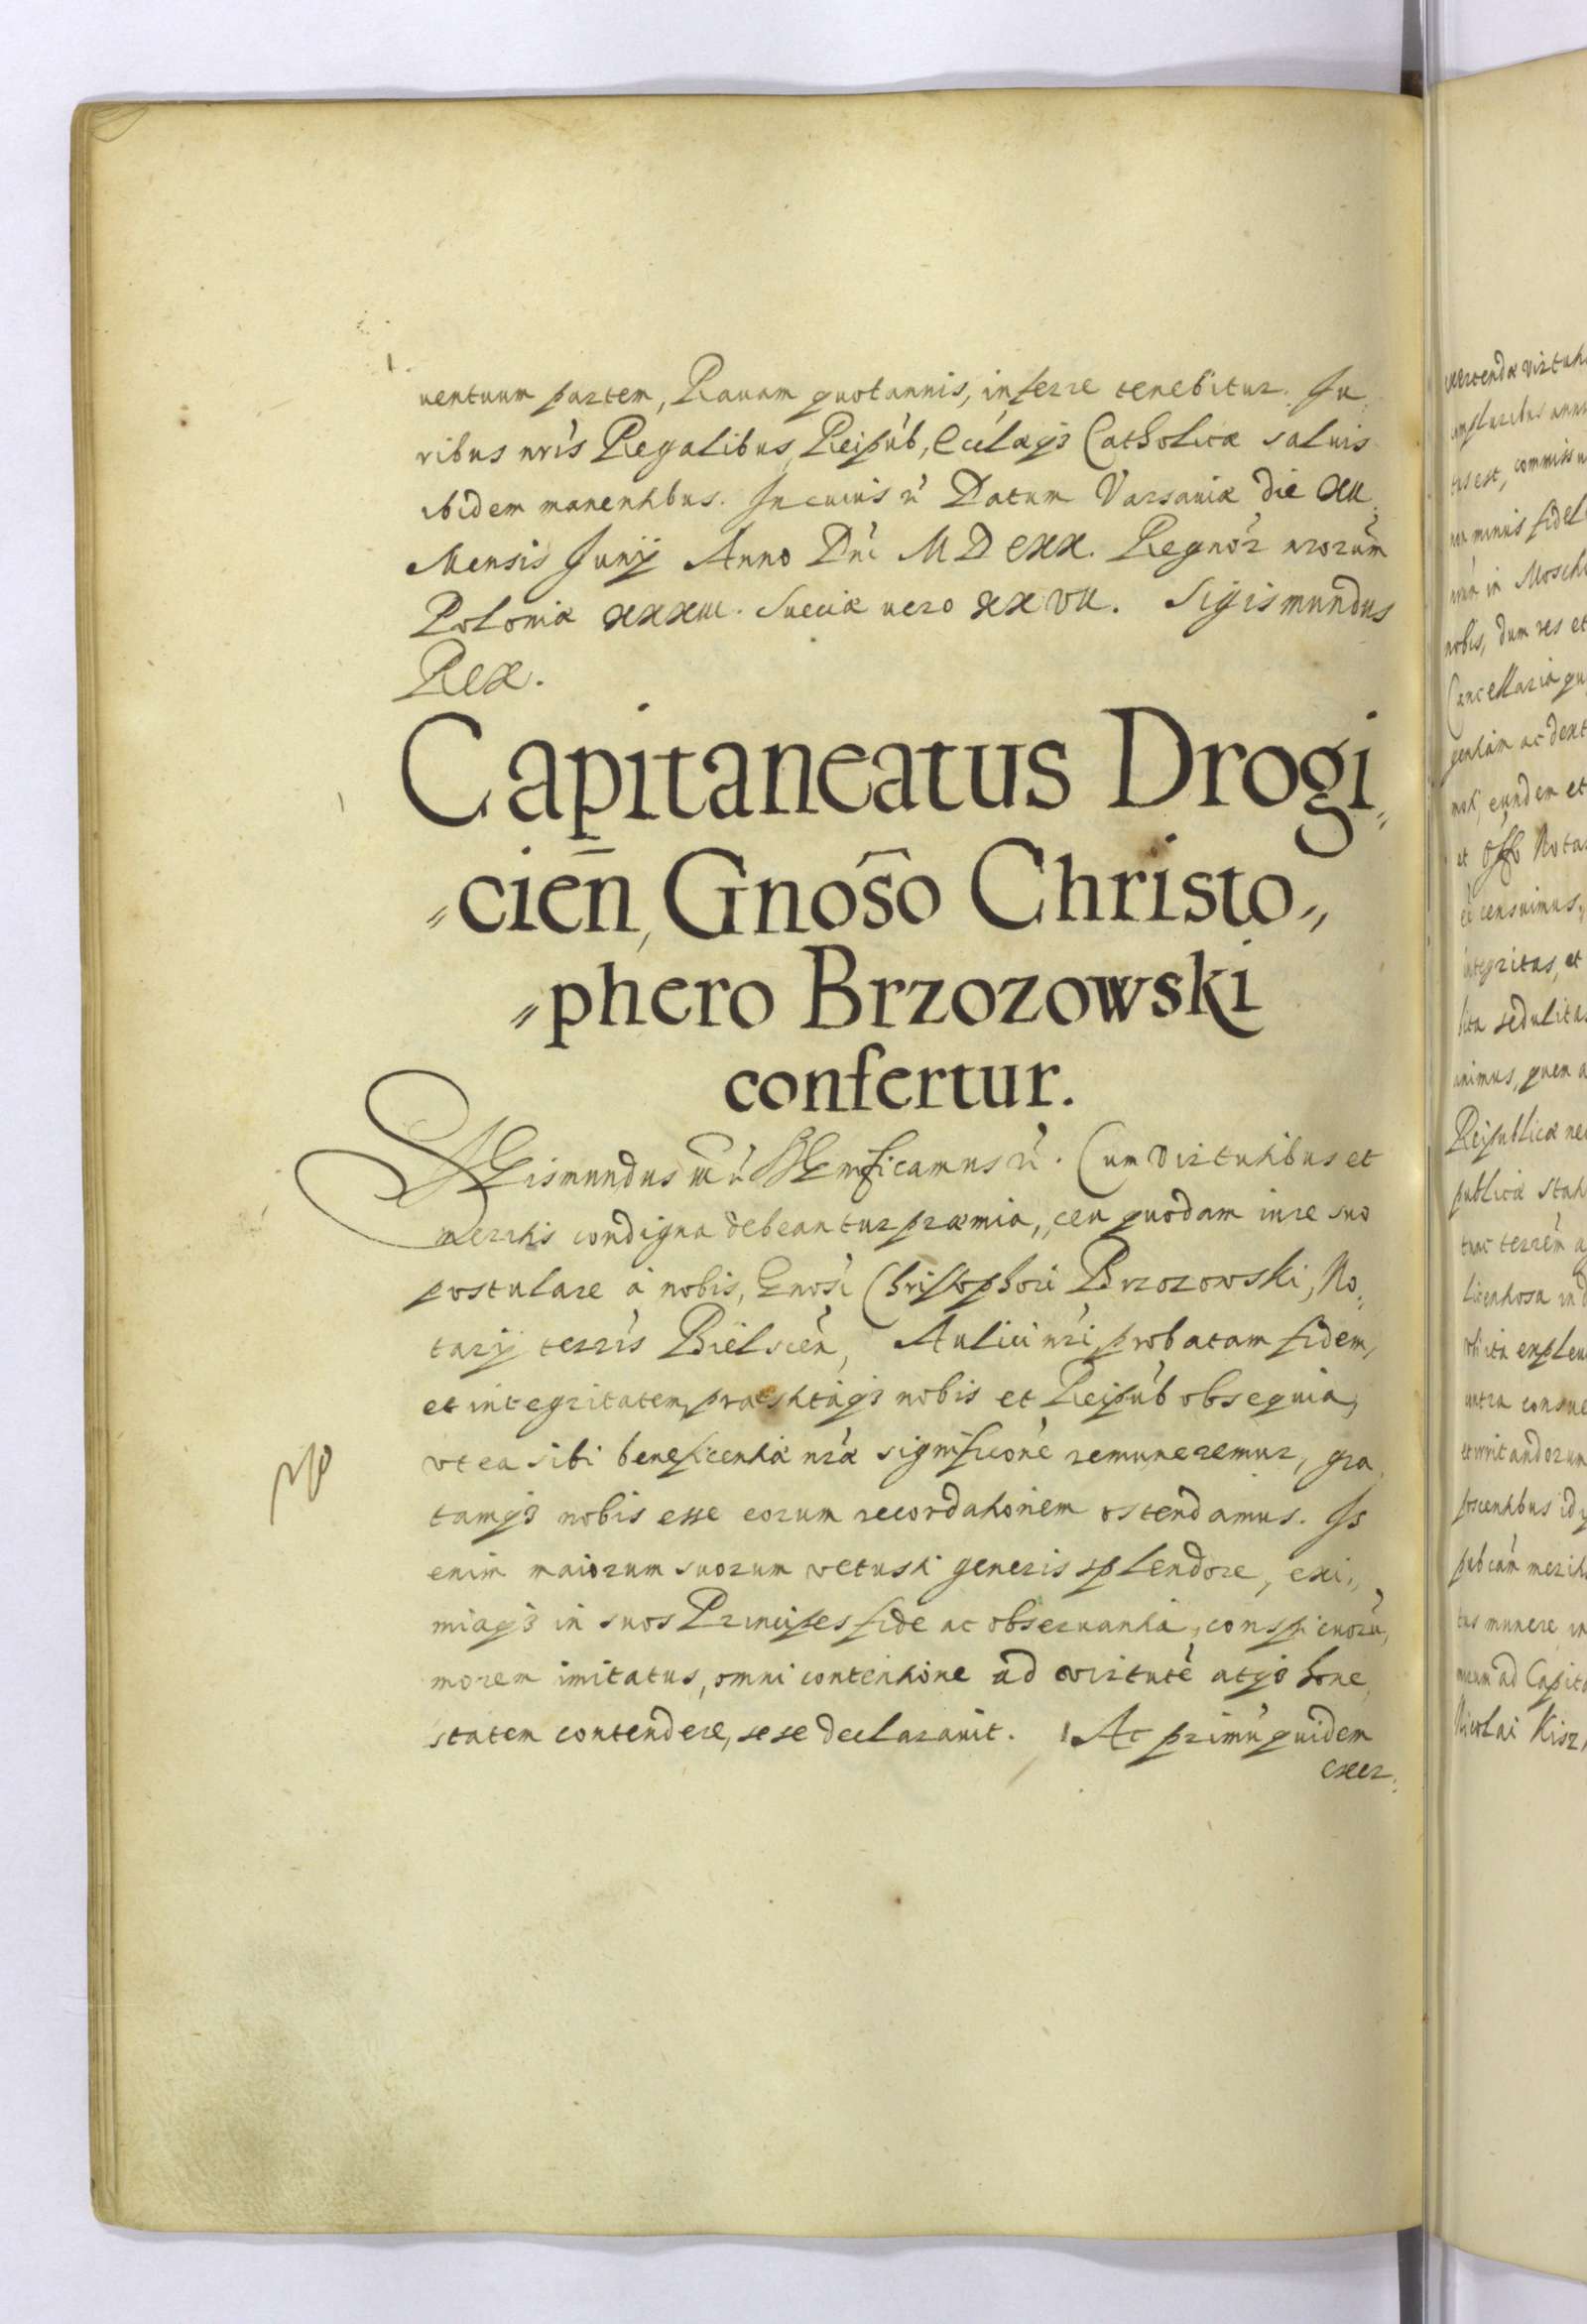 uentuum partem, Rauam quotannis, inferre tenebitur. Iu,
ribus nris Regalibus, Reipub, Ecclaeq3 Catholicæ saluis
ibidem manentibus. In cuius rì Datum Varsauiæ die XII,
Mensis Junij Anno Dni MDCXX. Regnor nrorum
Poloniæ XXXIII. Sueciæ uero XXVII. Sigismundus
Rex.
Capitaneatus Drogi„
„cien̄, Gnoso Christo„
„phero Brzozowski
confertur.
SIGismundus III rì SIGnificamus rì. Cum virtutibus et
meritis condigna debeantur præmia, ceu quodam iure suo
postulare à nobis, Gnosi Christophori Brzozowski, No„
tarij terris Bielscen, Aulici nri, probatam fidem,
et integritatem, præstitaq3 nobis et Reipub obsequia,
vt ea sibi beneficentiæ nræ significone remuneremur, gra,
tamq3 nobis esse eorum recordationem ostendamus. Is
enim maiorum suorum vetusti generis splendore, exi„
miaq3 in suos Principes fide ac obseruantia, conspicuorũ,
morem imitatus, omni contentione ad virtutẽ atq3 hone,
statem contendere, sese declarauit. Ac primũ quidem
exer„
uertendæ virtuti
compluribus anni
tus est, commissu
non minus fidel
in Moschi
nobis, dum res et
Cancellaria qu
gentiam ac dext
eundem et
et Offo Nota
censuimus,
integritas, et
sedulitas
animus, quem a
Reipublicæ ne
publicæ stat
terrem a
expleu
intra consue
et irritandorum
poscentibus id q
meriti
tus munere in
ad Capita
Nicolai Kisz